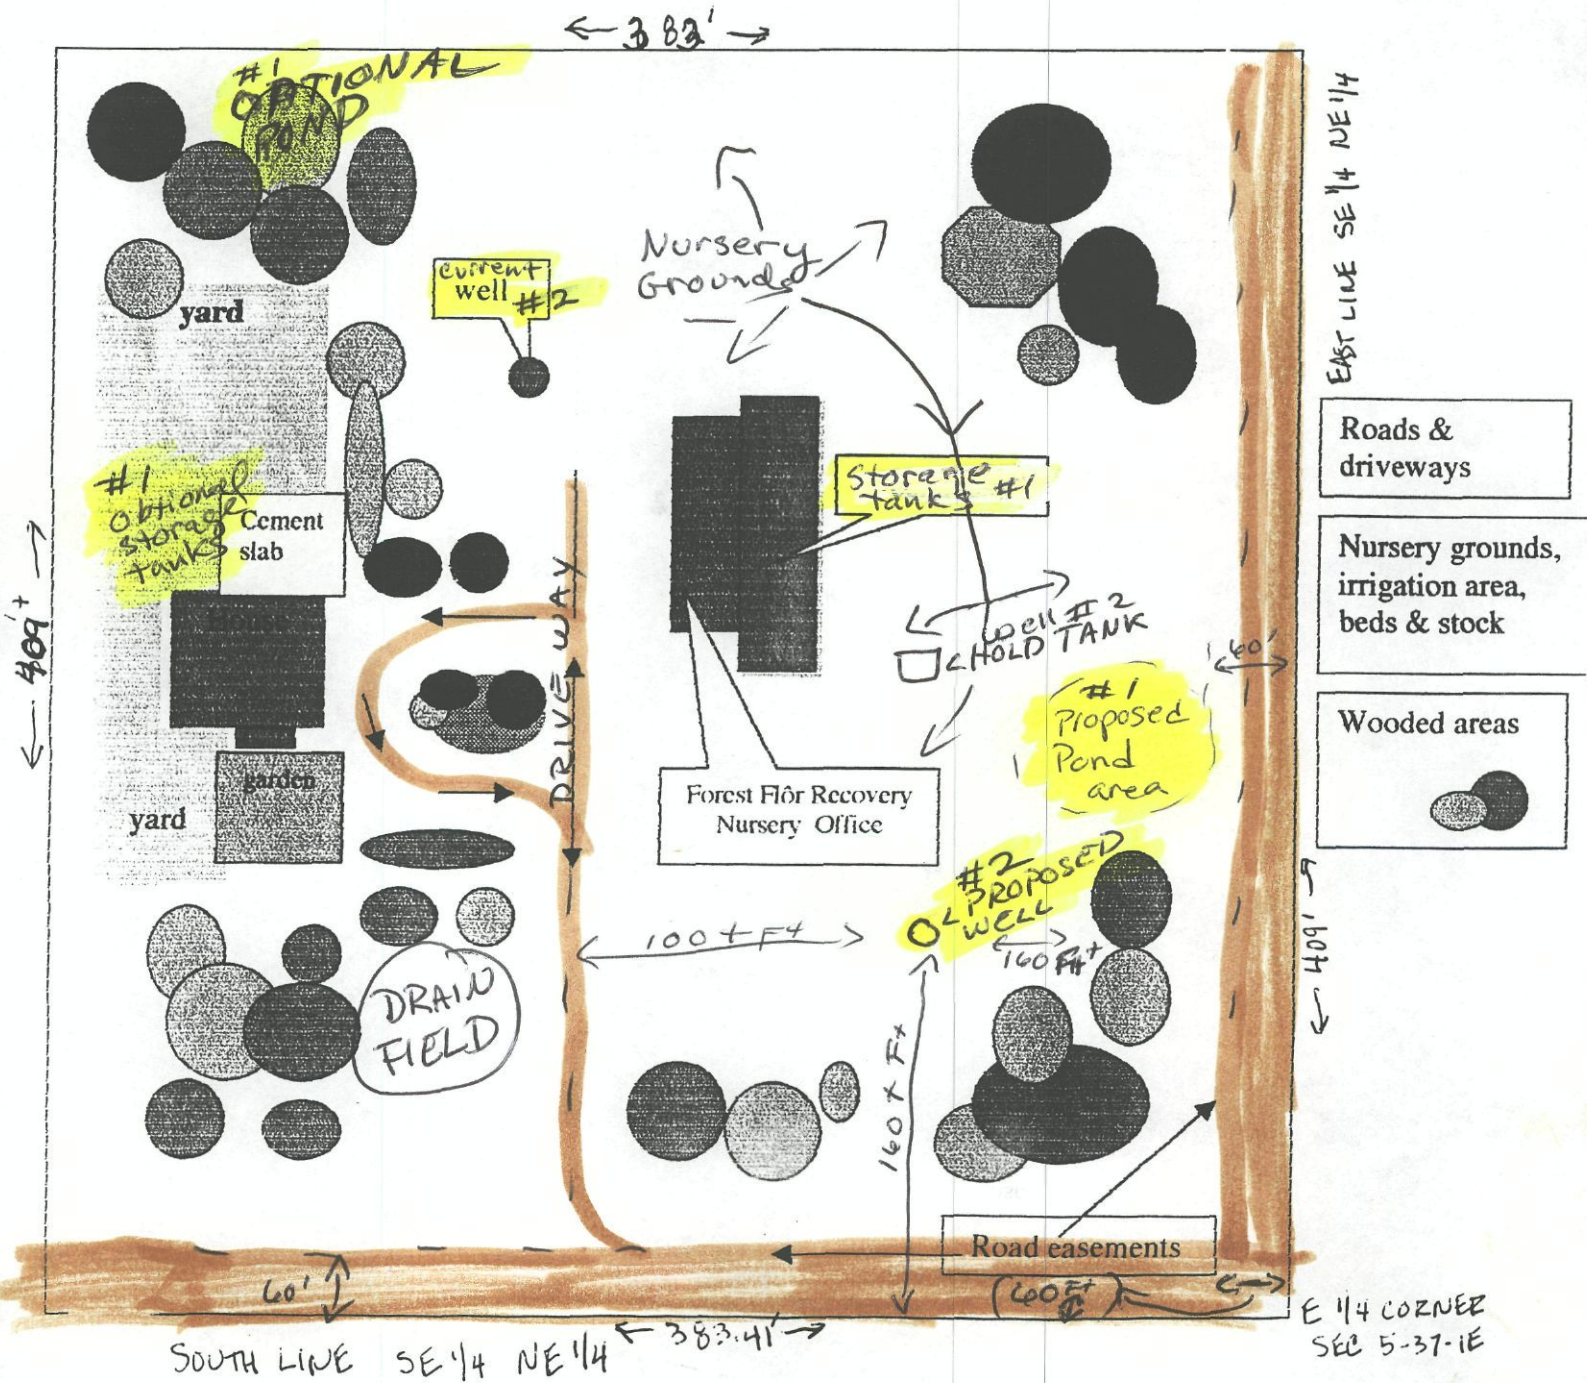 ← 383' →
#1
OPTIONAL
POND
EAST LINE SE 1/4 NE 1/4
Nursery
Grounds
current
well #2
yard
Roads &
driveways
#1
Optional
storage
tanks
Cement
slab
Storage
tanks #1
Nursery grounds,
irrigation area,
beds & stock
← 409'+ →
House
DRIVE WAY
well #2
HOLD TANK
60'
#1
Proposed
Pond
area
Wooded areas
garden
yard
Forest Flôr Recovery
Nursery Office
#2
PROPOSED
WELL
100 + Ft
160 Ft+
← 409' →
DRAIN
FIELD
160 + Ft
Road easements
(60 Ft)
60'
← 383.41' →
E 1/4 CORNER
SEC 5-37-1E
SOUTH LINE SE 1/4 NE 1/4